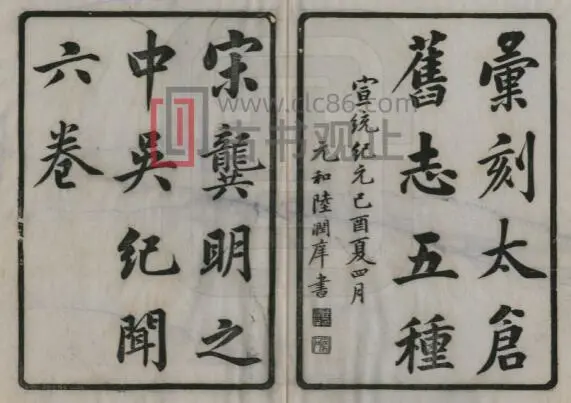 彙刻太倉
舊志五種
宣統紀元己酉夏四月
元和陸潤庠書
宋龔明之
中吳紀聞
六卷
www.clc86.com
古书观上